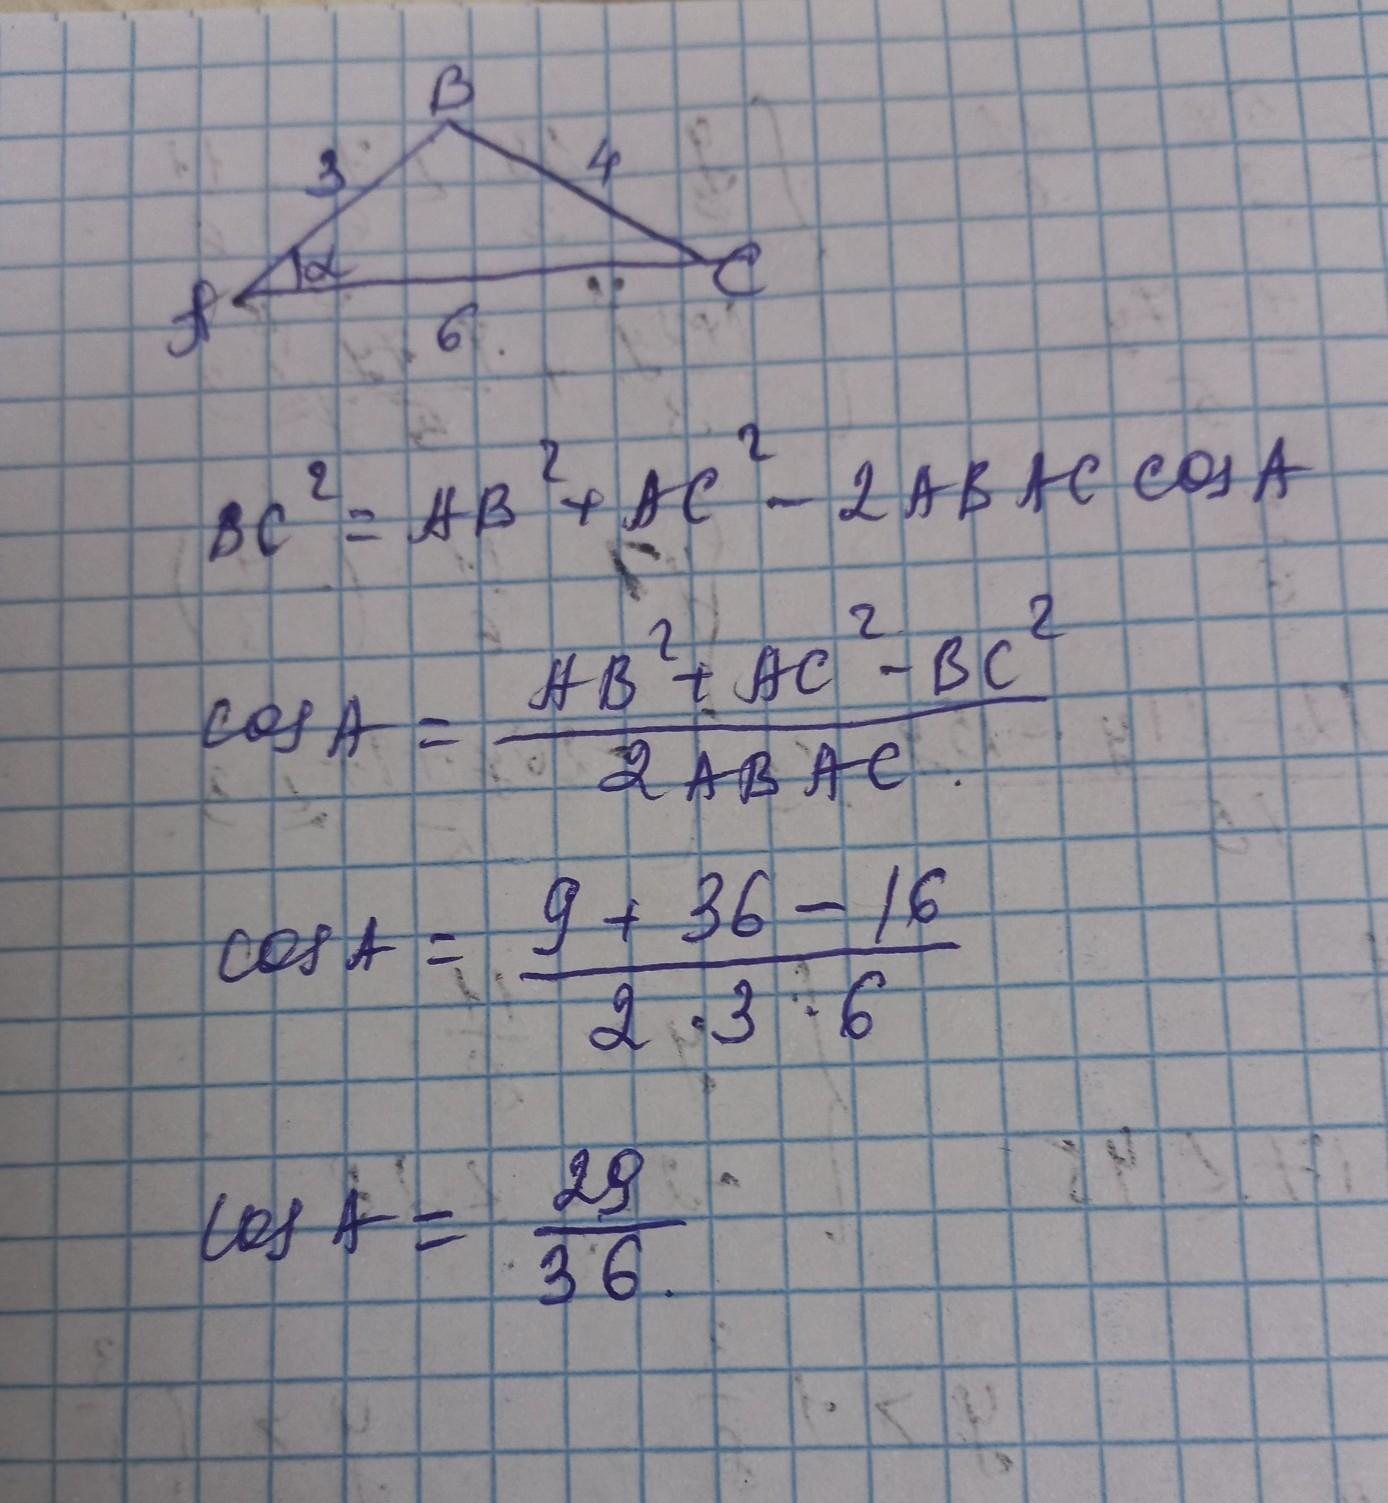 B
3 4
α
A C
6
BC² = AB² + AC² - 2 AB AC cos A
cos A = (AB² + AC² - BC²) / (2 AB AC)
cos A = (9 + 36 - 16) / (2 · 3 · 6)
cos A = 29 / 36.